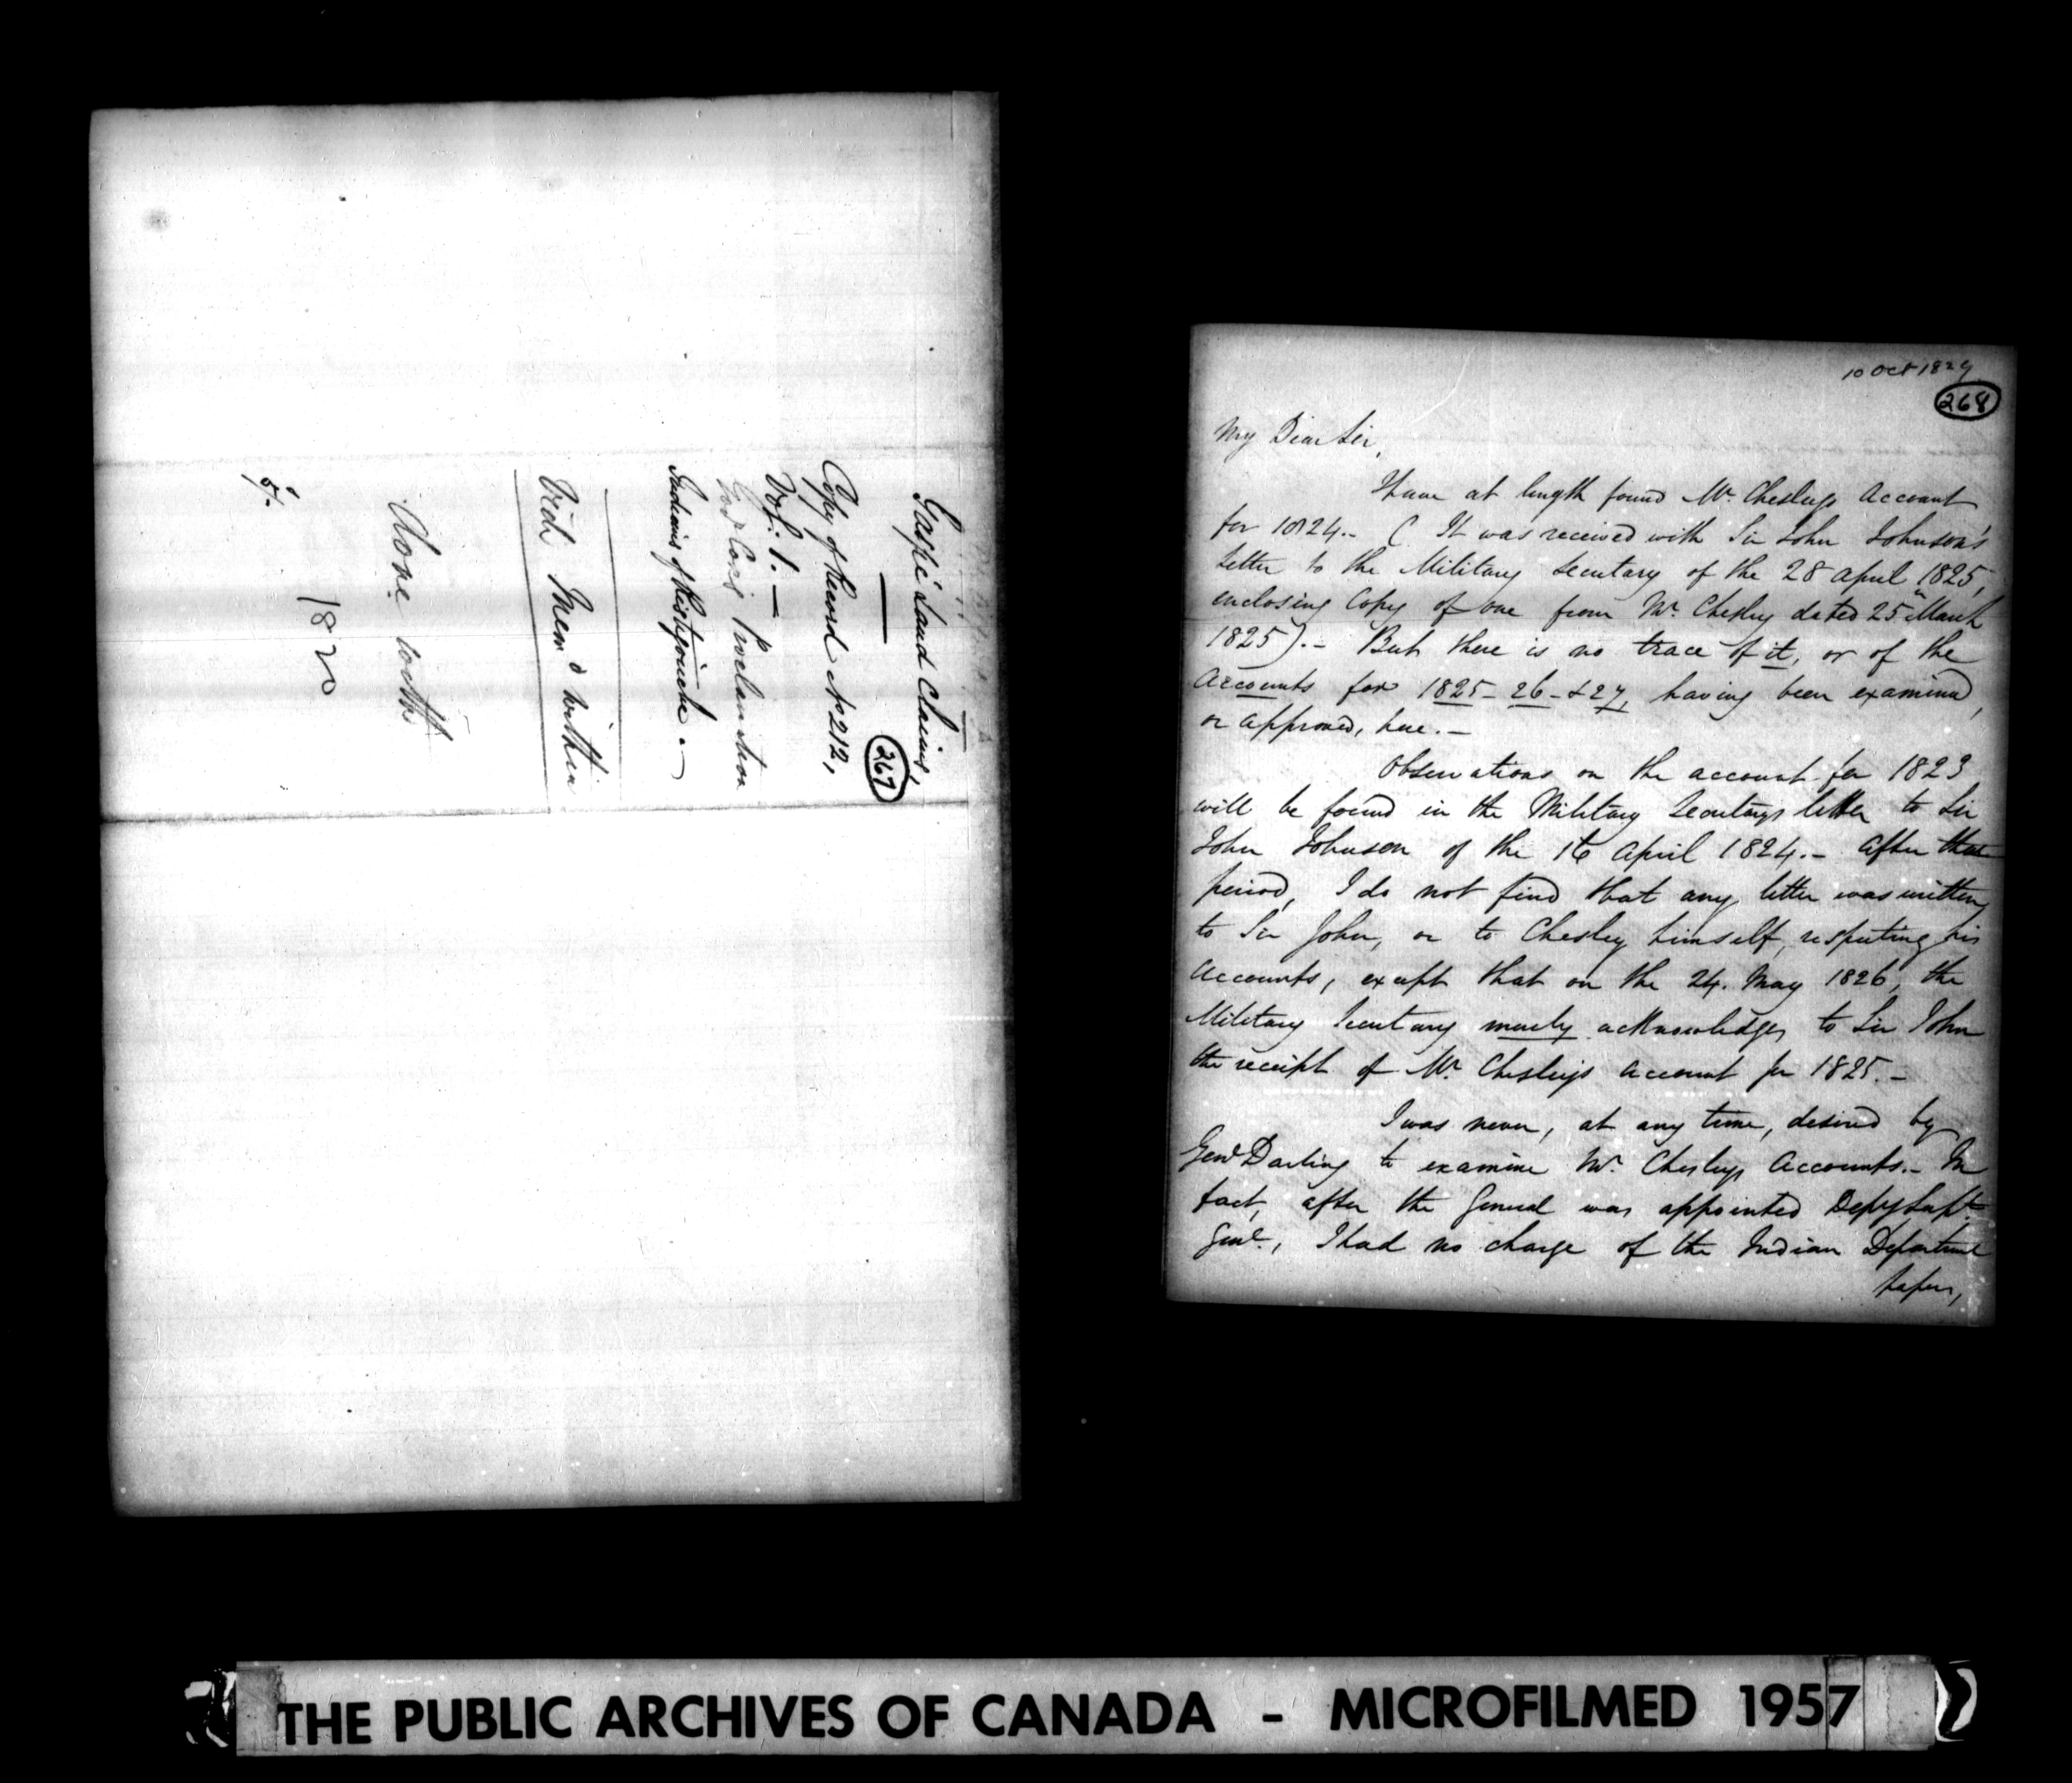 Gaspé Land Claims,
267
Copy of Record No 212,
Vol: 1. —
Proclamation
Indians of Ristigouche. —
Vide Memo within
1820
10 Oct 1829
268
My Dear Sir,
I have at length found Mr. Chesley's Account
for 1824.- (It was received with Sir John Johnson's
letter to the Military Secretary of the 28 April 1825,
enclosing Copy of one from Mr. Chesley dated 25 March
1825).- But there is no trace of it, or of the
Accounts for 1825-26-& 27, having been examined,
or approved, here.-
Observations on the account for 1823
will be found in the Military Secretarys letter to Sir
John Johnson of the 16 April 1824.- After that
period, I do not find that any letter was written
to Sir John, or to Chesley himself, respecting his
Accounts, except that on the 24. May 1826, the
Military Secretary merely acknowledges to Sir John
the receipt of Mr. Chesley's Account for 1825.-
I was never, at any time, desired by
Genl Darling to examine Mr. Chesleys Accounts.- In
fact, after the General was appointed Depy Supt
Genl., I had no charge of the Indian Department
papers,
THE PUBLIC ARCHIVES OF CANADA - MICROFILMED 1957